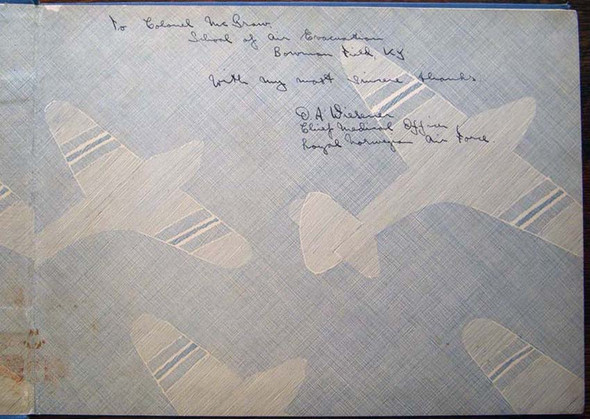 To Colonel McGraw,
School of Air Evacuation
Bowman Field, Ky
With my most sincere thanks
Chief Medical Officer
Royal Norwegian Air Force.